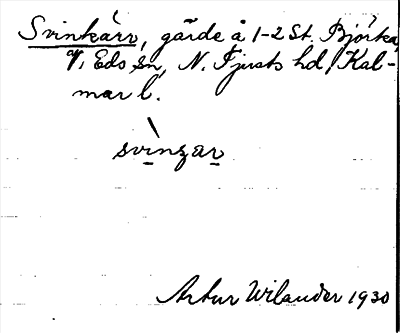 Svinkärr, gärde å 1-2 St. Björka,
V. Eds sn, N. Tjusts hd, Kal-
mar l.
svìnzar
Artur Wilander 1930